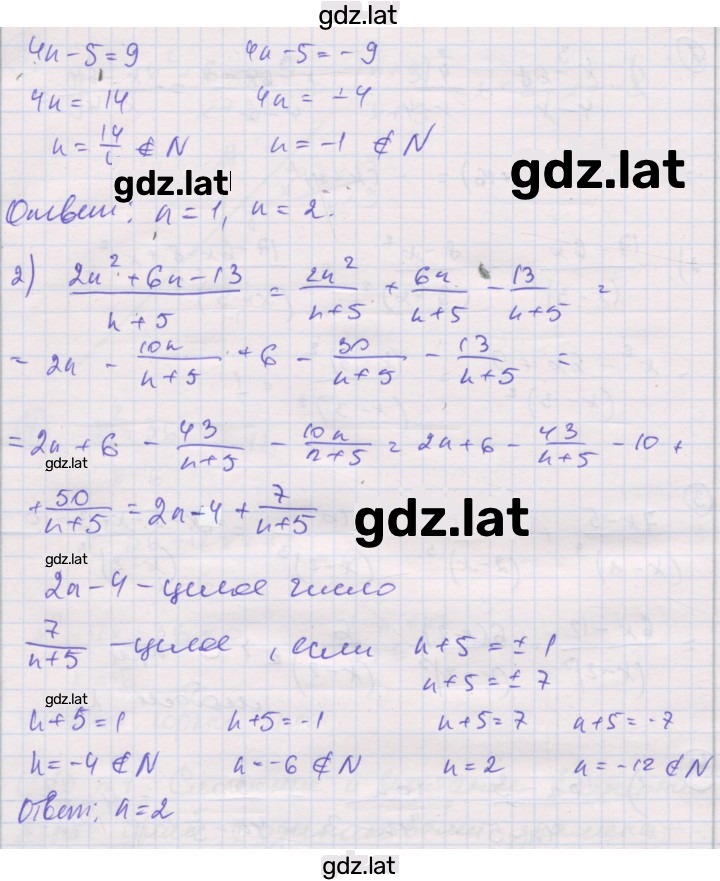 gdz.lat
4n-5=9 4n-5=-9
4n= 14 4n= -4
n= 14/4 ∉ N n= -1 ∉ N
gdz.lat gdz.lat
Ответ: n=1, n=2.
2) (2n²+6n-13)/(n+5) = 2n²/(n+5) + 6n/(n+5) - 13/(n+5) =
= 2n - 10n/(n+5) + 6 - 30/(n+5) - 13/(n+5) =
= 2n+6 - 43/(n+5) - 10n/(n+5) = 2n+6 - 43/(n+5) - 10 +
gdz.lat
+ 50/(n+5) = 2n-4 + 7/(n+5)
gdz.lat
gdz.lat
2n-4 - целое число
7/(n+5) - целое, если n+5 = ± 1
n+5 = ± 7
gdz.lat
n+5=1 n+5=-1 n+5=7 n+5=-7
n=-4 ∉ N n=-6 ∉ N n=2 n=-12 ∉ N
Ответ: n=2
gdz.lat